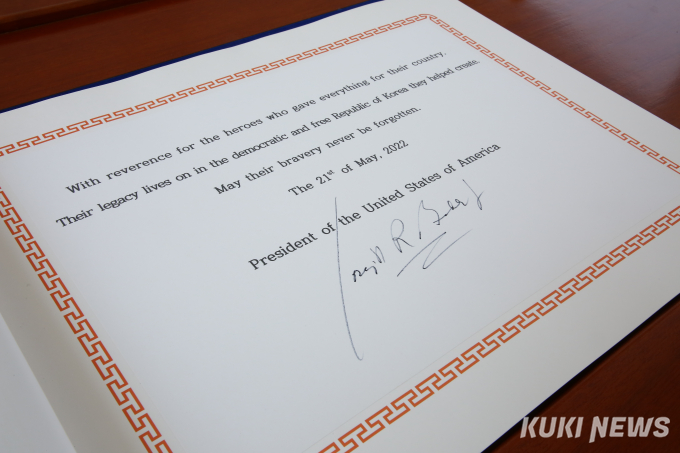 With reverence for the heroes who gave everything for their country.
Their legacy lives on in the democratic and free Republic of Korea they helped create.
May their bravery never be forgotten.
The 21st of May, 2022
President of the United States of America
KUKI NEWS